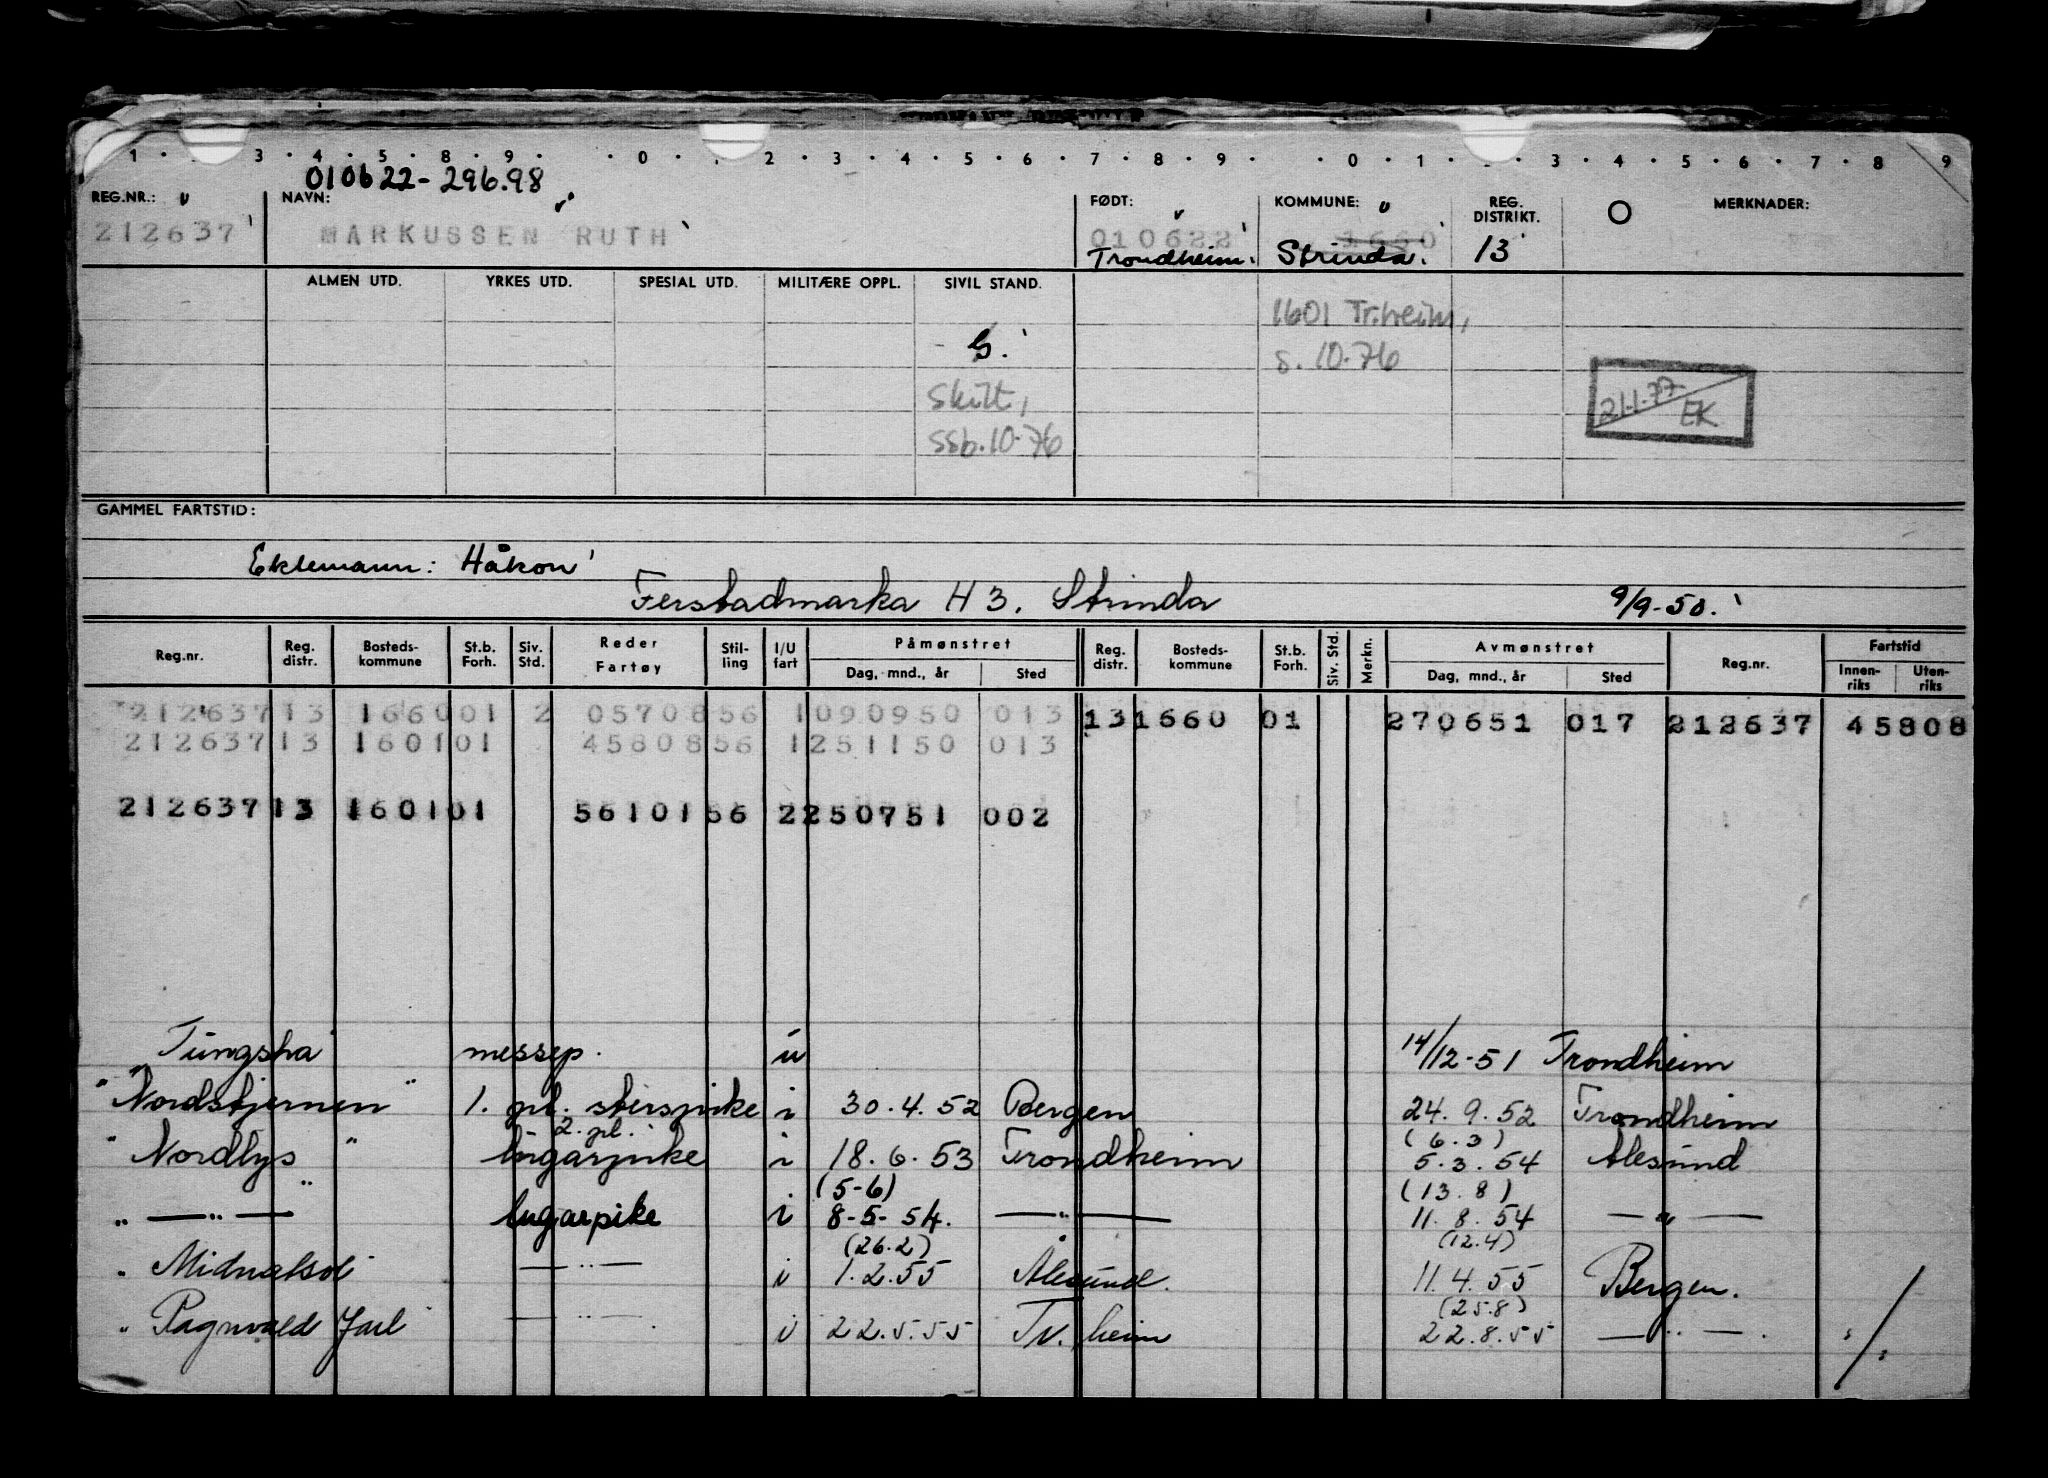 1 · 3 · 4 · 5 · 8 · 9 · · 0 · 2 · 3 · 4 · 5 · 6 · 7 · 8 · 9 · · 0 · 1 · 3 · 4 · 5 · 6 · 7 · 8 9
010622-296.98
REG.NR.: NAVN: FØDT: KOMMUNE: REG. DISTRIKT. O MERKNADER:
212637 MARKUSSEN RUTH 010622 1660 13
Trondheim. Strinda.
ALMEN UTD. YRKES UTD. SPESIAL UTD. MILITÆRE OPPL. SIVIL STAND.
1601 Tr.heim,
G. s. 10.76
Skilt, 21.1.77 EK
ssb.10-76
GAMMEL FARTSTID:
Ektemann: Håkon
Ferstadmarka H 3. Strinda 9/9-50.
Reg.nr. Reg. distr. Bosteds- kommune St.b. Forh. Siv. Std. Reder Fartøy Stil- ling I/U fart Påmønstret Dag, mnd., år Sted Reg. distr. Bosteds- kommune St.b. Forh. Siv. Std. Merkn. Avmønstret Dag, mnd., år Sted Reg.nr. Fartstid Innen- riks Uten- riks
212637 13 1660 01 2 05708 56 1 090950 013 13 1660 01 270651 017 212637 45808
212637 13 1601 01 45808 56 1 251150 013
212637 13 1601 01 56101 56 2 250751 002
Tungsha messep. u 14/12-51 Trondheim
" Nordstjernen " 1. pl. sterspike i 30.4.52 Bergen 24.9.52 Trondheim
2. pl. (6.3)
" Nordlys " lugarpike i 18.6.53 Trondheim 5.3.54 Ålesund
(5-6) (13.8)
" — " — lugarpike i 8-5-54. — " — 11.8.54 — " —
(26.2) (12.4)
" Midnatsol — " — i 1.2.55 Ålesund. 11.4.55 Bergen.
(25.8)
" Ragnvald Jarl — " — i 22.5.55 Tr.heim 22.8.55 — " — .